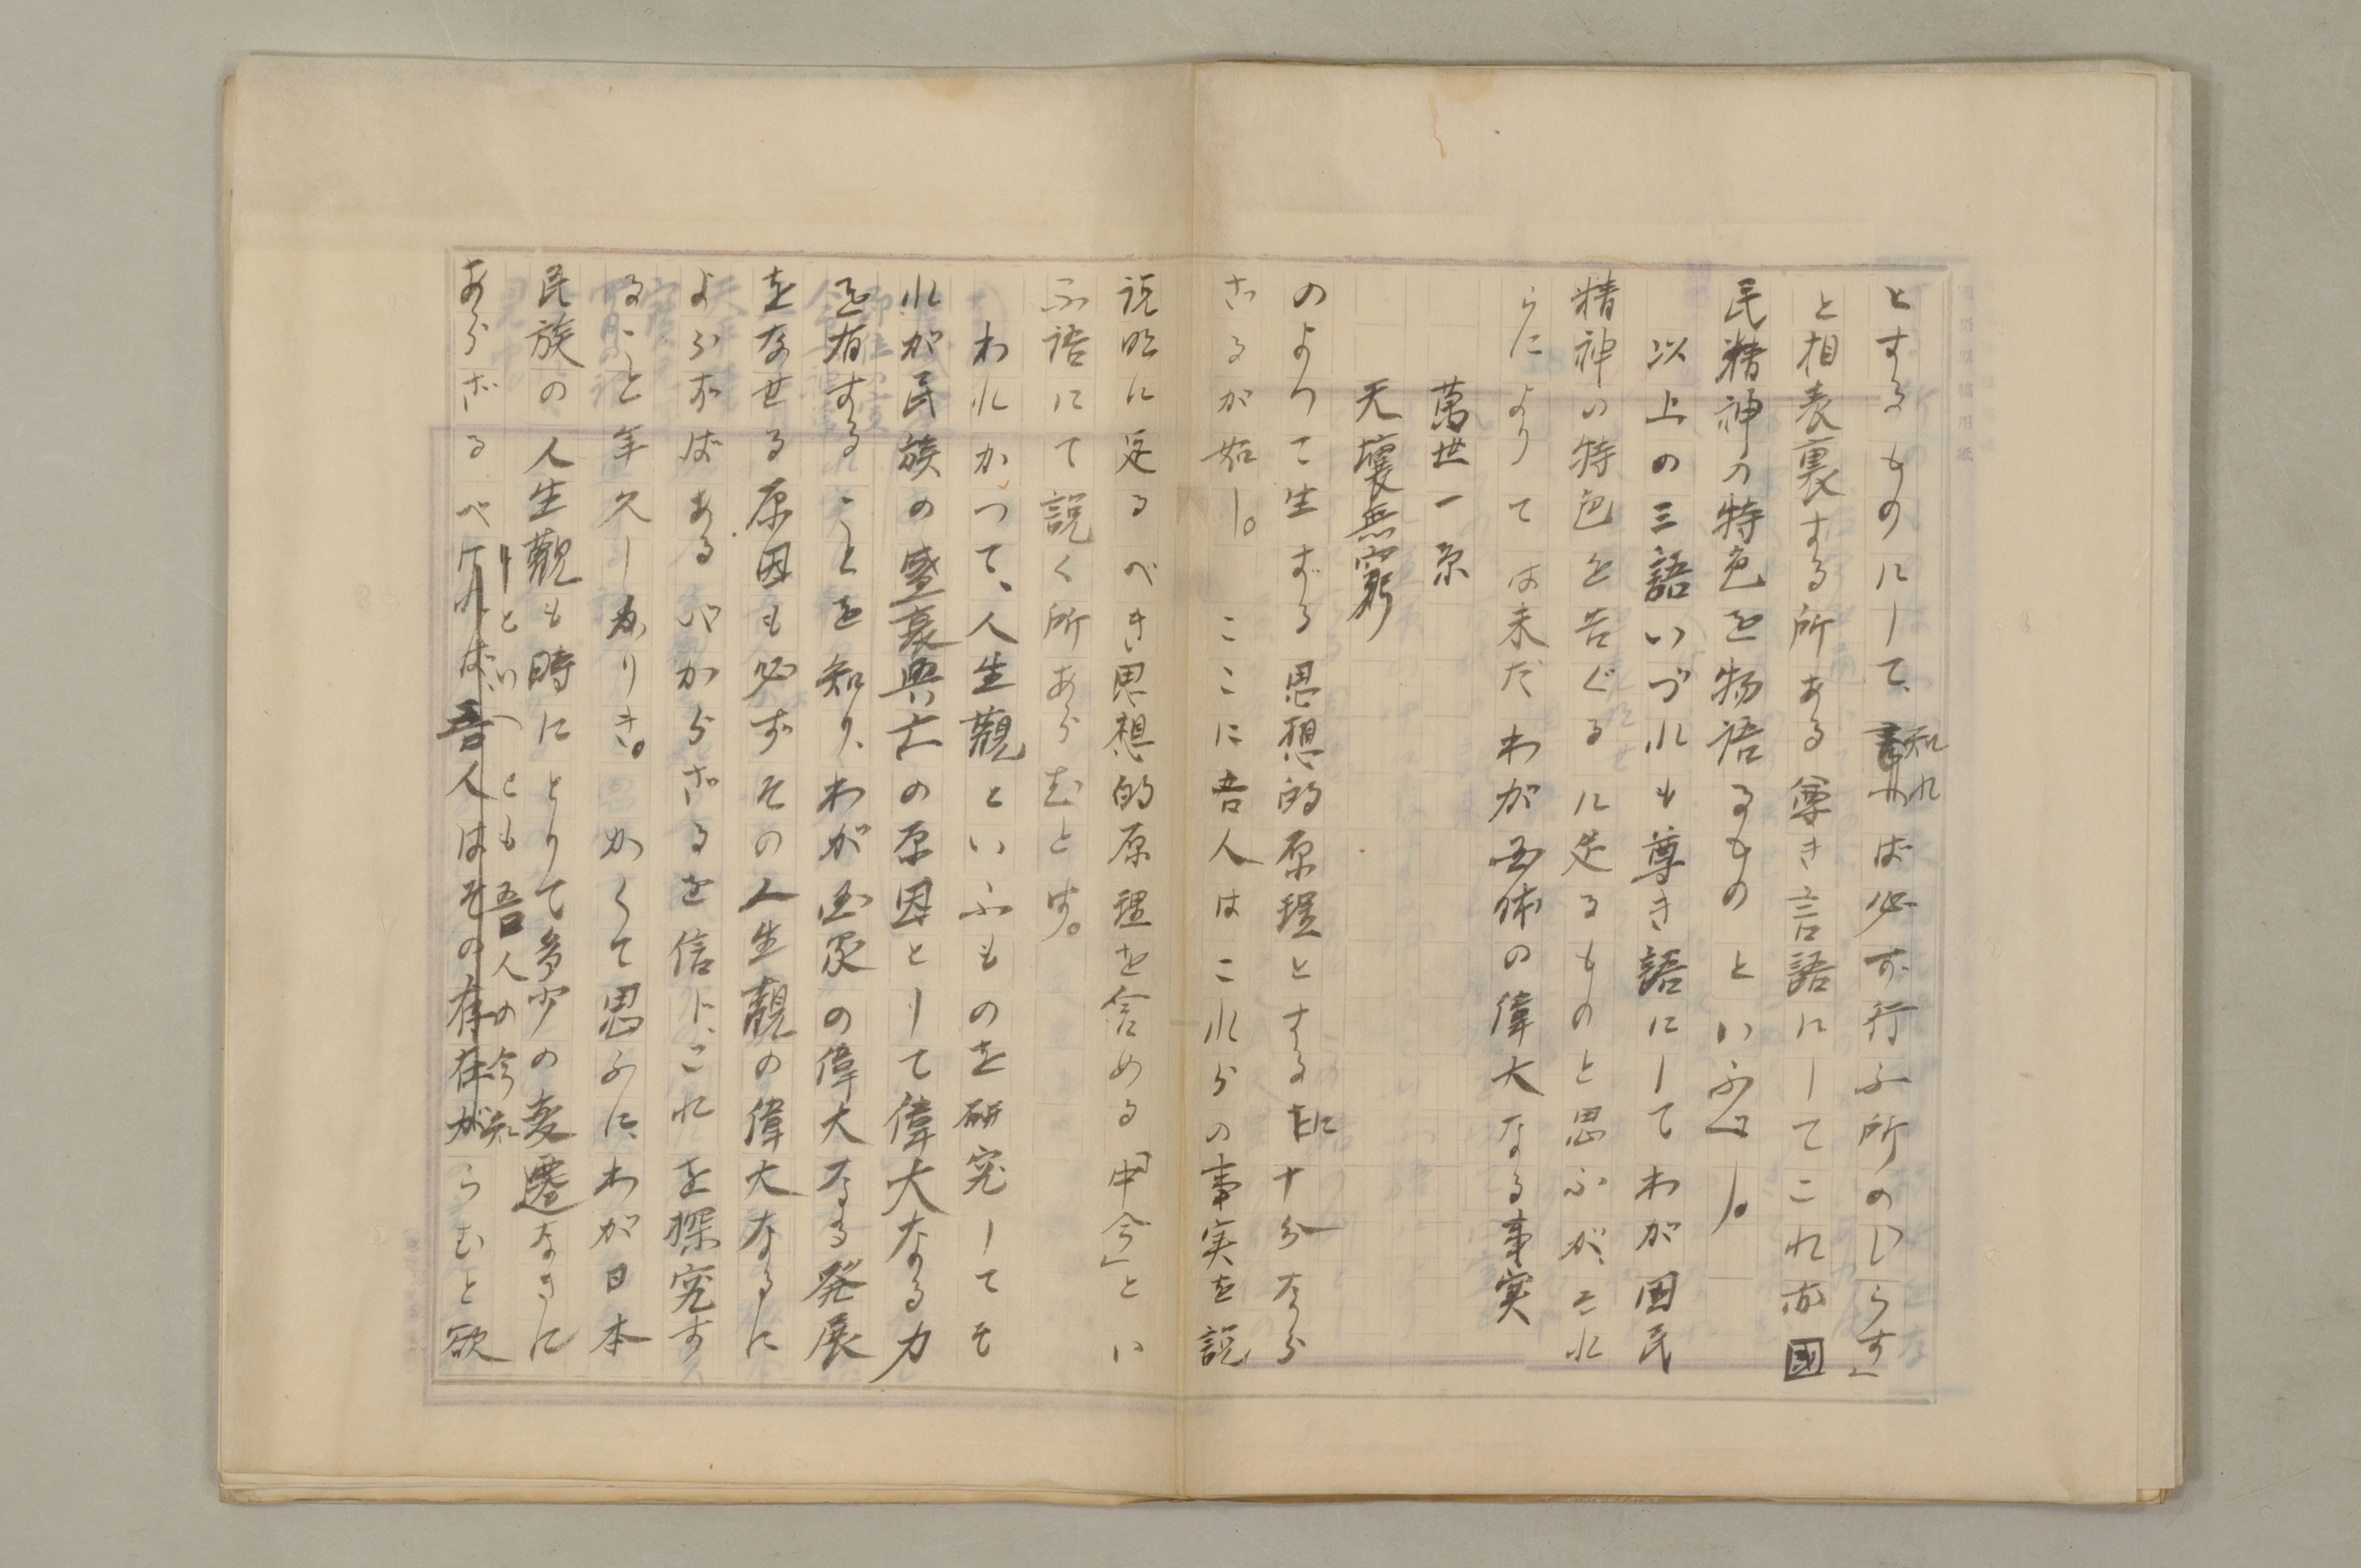 とするものにして、知れば必ず行ふ所の「しらす」
と相表裏する所ある尊き言語にしてこれ亦國
民精神の特色を物語るものといふべし。
以上の三語いづれも尊き語にしてわが国民
精神の特色を告ぐるに足るものと思ふが、これ
らによりては未だわが国体の偉大なる事実
萬世一系
天壤無窮
のよつて生ずる思想的原理とするに十分なら
ざるが如し。ここに吾人はこれらの事実を説
説明に足るべき思想的原理を含める「中今」とい
ふ語にて説く所あらむとす。
われかつて、人生觀といふものを研究してそ
れが民族の盛衰興亡の原因として偉大なる力
を有することを知り、わが国家の偉大なる発展
をなせる原因も必ずその人生觀の偉大なるに
よらずばあるべからざるを信じ、これを探究す
ること年久しかりき。かくて思ふに、わが日本
民族の人生觀も時にとりて多少の変遷なきに
あらざるべしといへども吾人の今知らむと欲